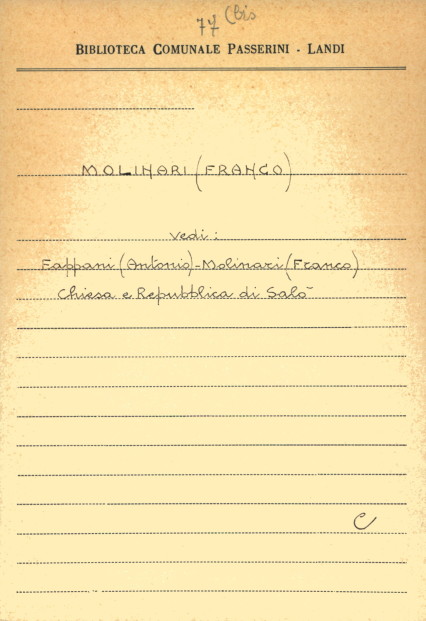 77 (bis
BIBLIOTECA COMUNALE PASSERINI - LANDI
MOLINARI (FRANCO)
vedi:
Fappani (Antonio)-Molinari (Franco)
Chiesa e Repubblica di Salò
C